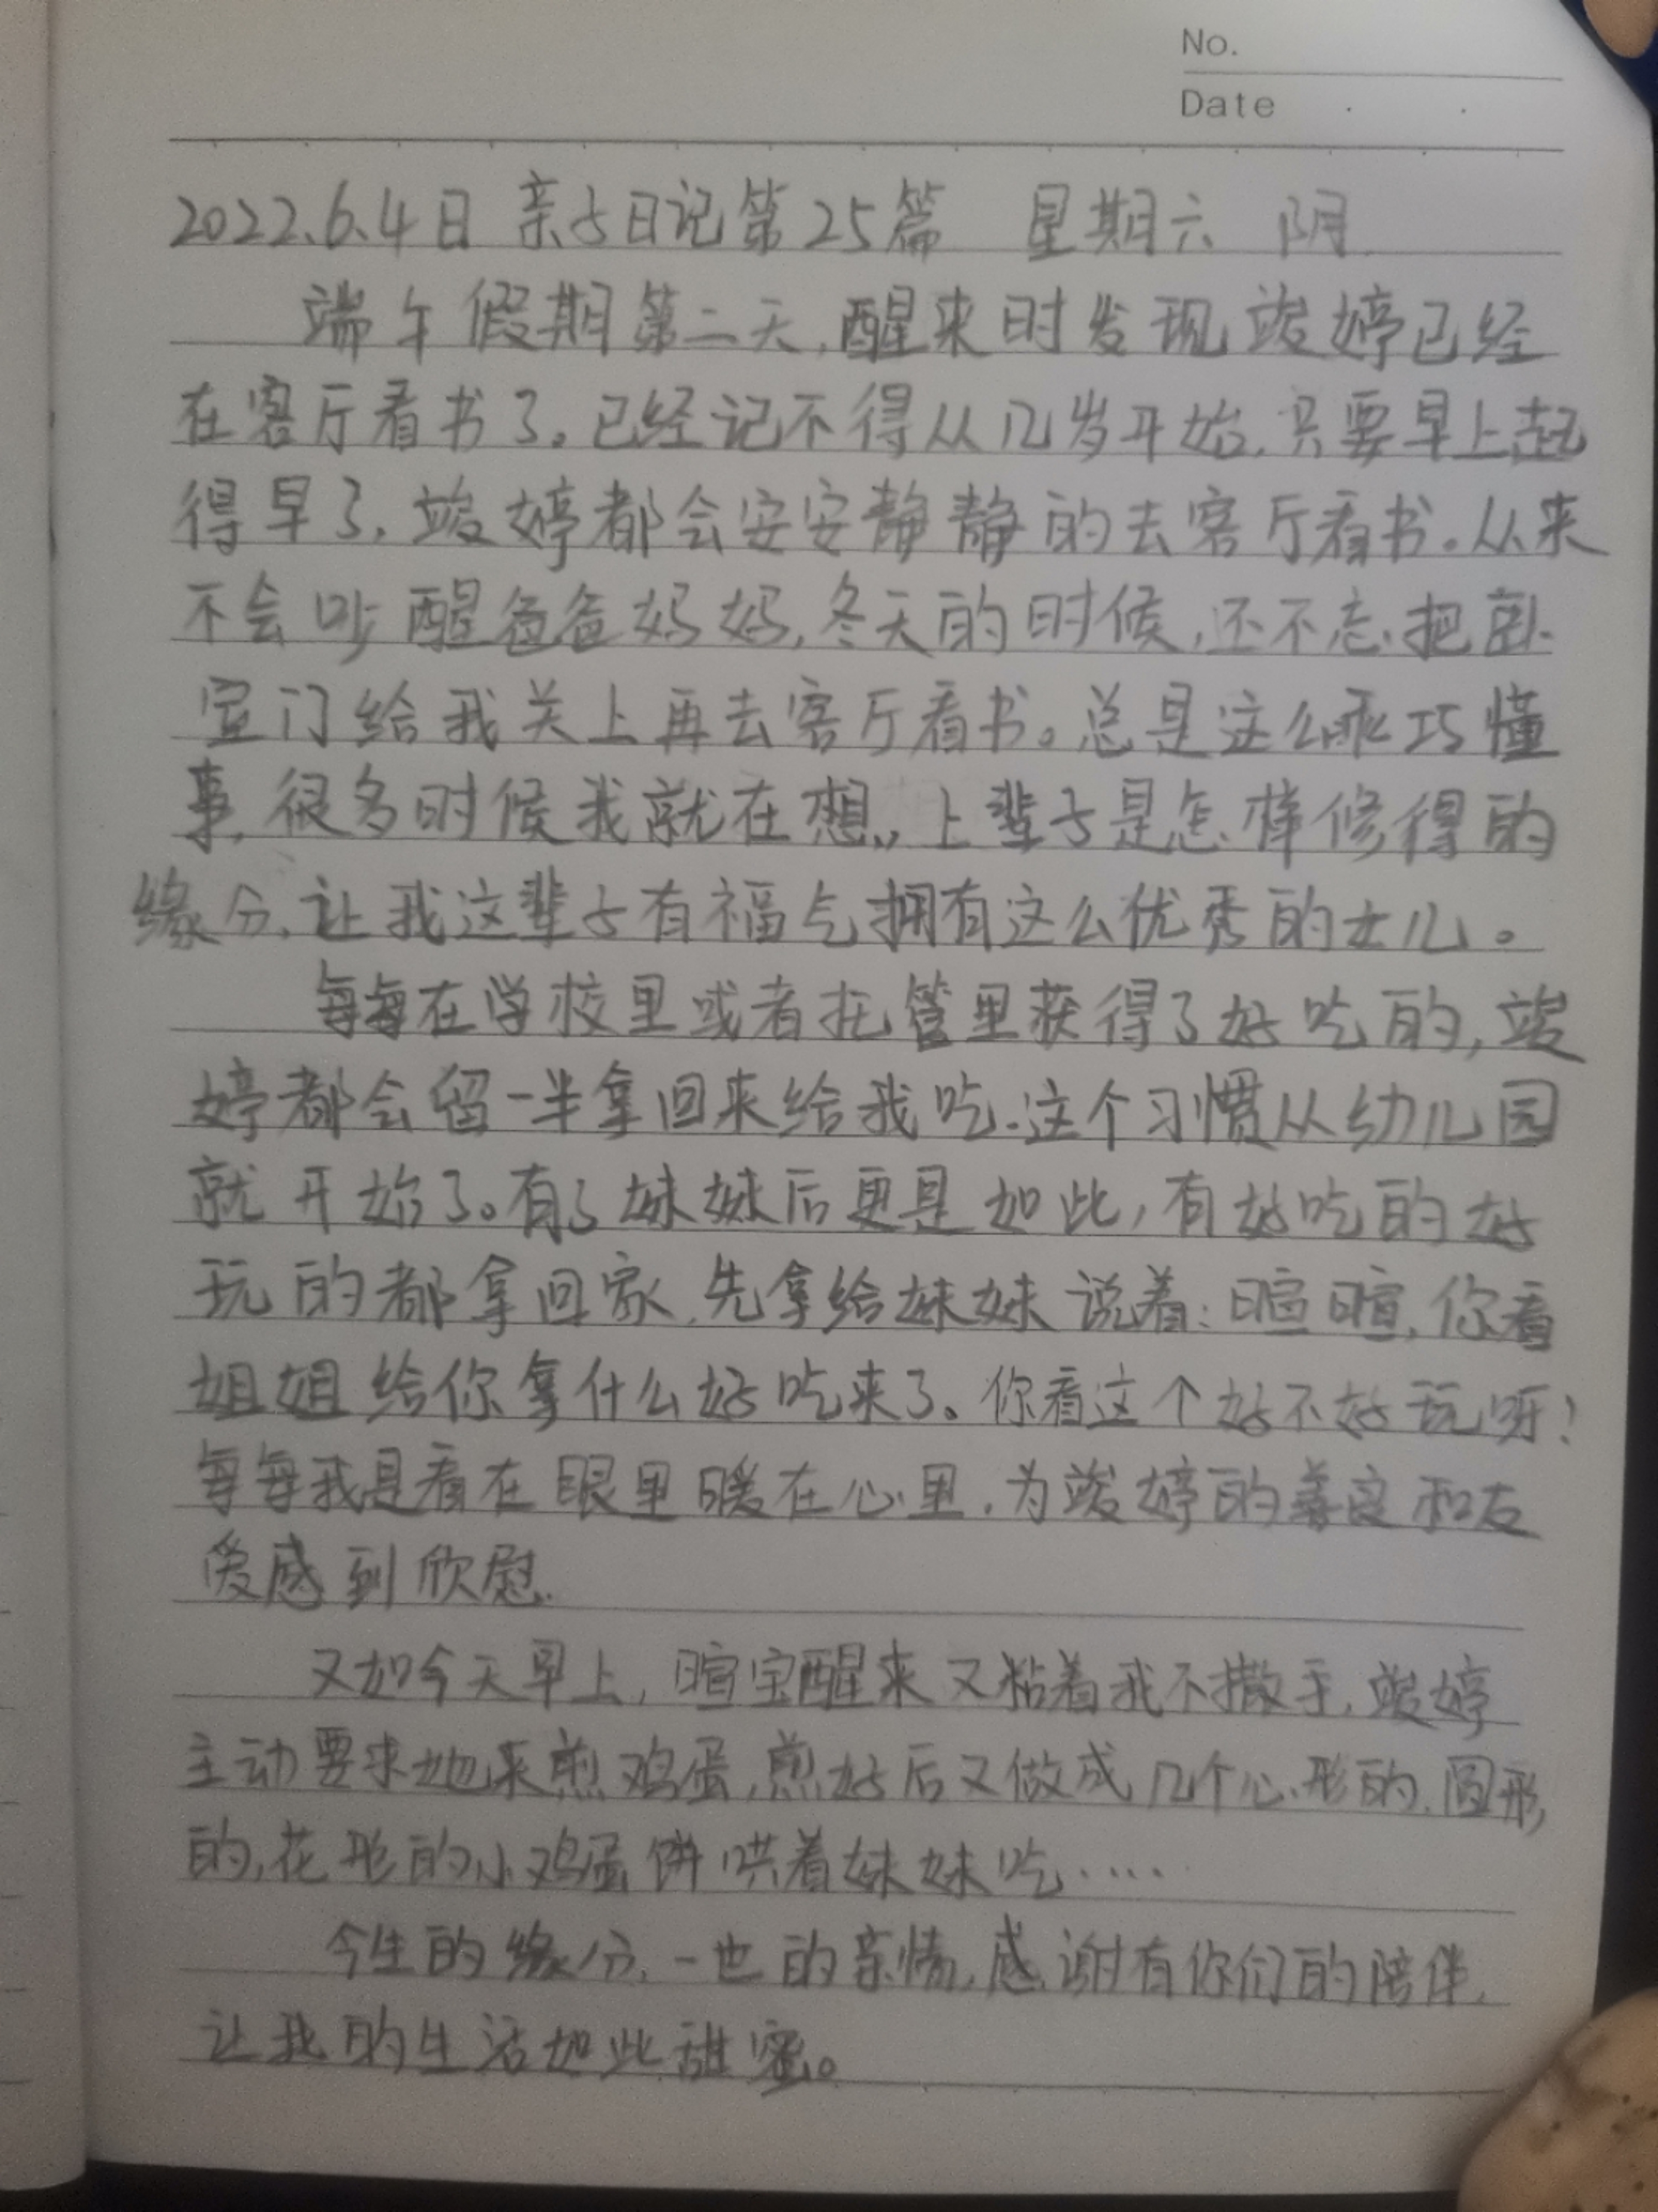 No.
Date
2022.6.4日 亲子日记第25篇 星期六 阴
端午假期第二天,醒来时发现竣婷已经
在客厅看书了。已经记不得从几岁开始,只要早上起
得早了,竣婷都会安安静静的去客厅看书。从来
不会吵醒爸爸妈妈,冬天的时候,还不忘把卧
室门给我关上再去客厅看书。总是这么乖巧懂
事,很多时候我就在想,上辈子是怎样修得的
缘分,让我这辈子有福气拥有这么优秀的女儿。
每每在学校里或者托管里获得了好吃的,竣
婷都会留一半拿回来给我吃.这个习惯从幼儿园
就开始了。有了妹妹后更是如此,有好吃的好
玩的都拿回家,先拿给妹妹说着:暄暄,你看
姐姐给你拿什么好吃来了。你看这个好不好玩呀!
每每我是看在眼里暖在心里,为竣婷的善良和友
爱感到欣慰.
又如今天早上,暄宝醒来又粘着我不撒手,竣婷
主动要求她来煎鸡蛋,煎好后又做成几个心形的,圆形
的,花形的小鸡蛋饼哄着妹妹吃……
今生的缘分,一世的亲情,感谢有你们的陪伴,
让我的生活如此甜蜜。